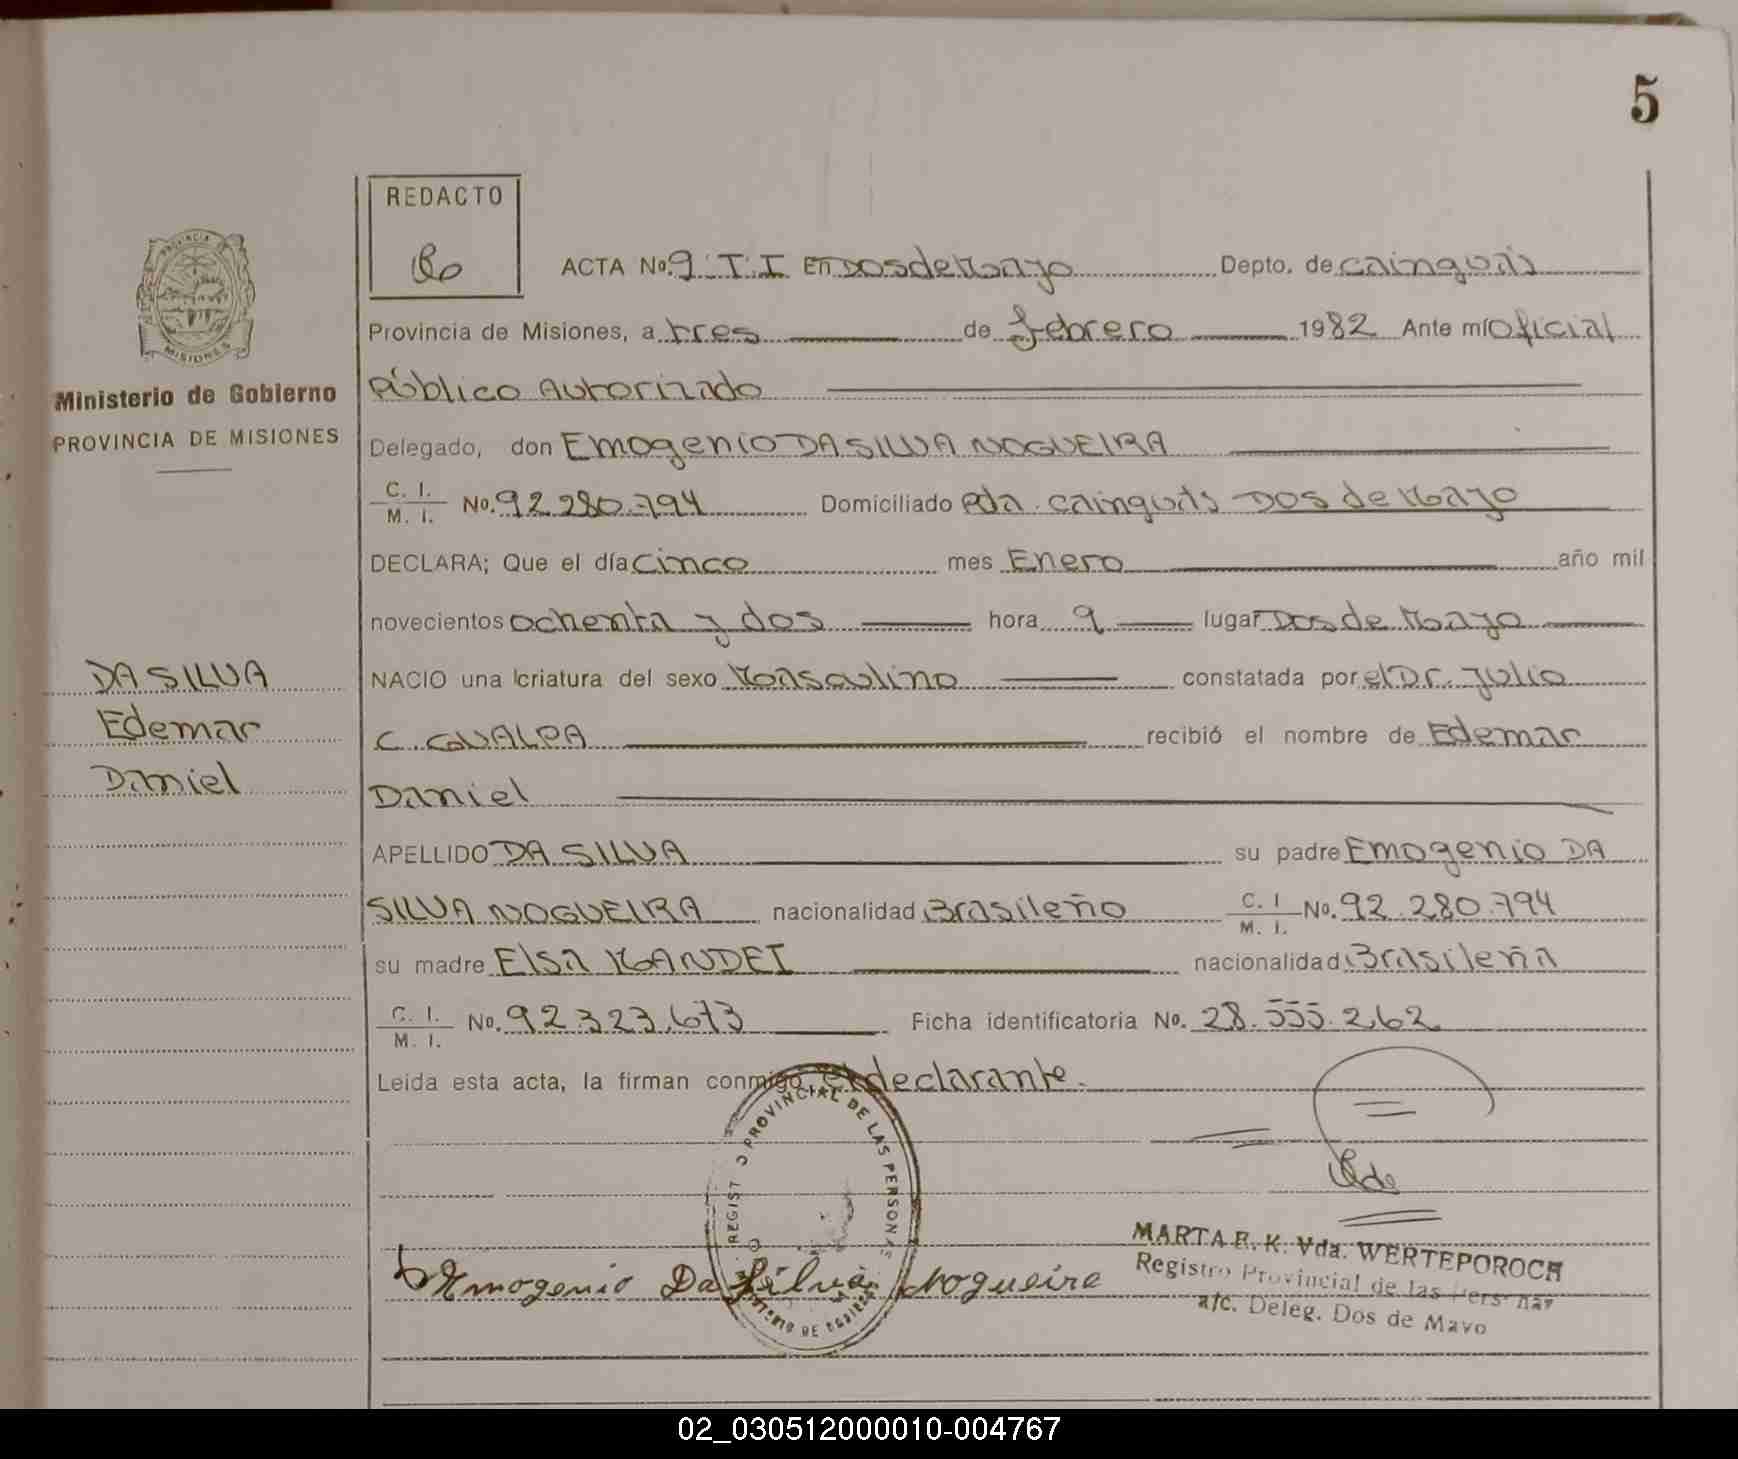 5
REDACTO
ACTA No. 9. T. I En DosdeMayo Depto. de cainguás
Provincia de Misiones, a tres de febrero 1982 Ante mí oficial
Público Autorizado
Ministerio de Gobierno
PROVINCIA DE MISIONES
Delegado, don Emogenio DA SILVA NOGUEIRA
C. I.
M. I. No. 92 280.794 Domiciliado Pda. cainguás Dos de Mayo
DECLARA; Que el día cinco mes Enero año mil
novecientos ochenta y dos hora 9 lugar Dos de Mayo
NACIO una criatura del sexo Masculino constatada por el Dr. Julio
C. GUALPA recibió el nombre de Edemar
Daniel
DA SILVA
Edemar
Daniel
APELLIDO DA SILVA su padre Emogenio DA
SILVA NOGUEIRA nacionalidad Brasileño C. I
M. I. No. 92.280.794
su madre Elsa MANDEI nacionalidad Brasileña
C. I.
M. I. No. 92.323.673 Ficha identificatoria No. 28.555.262
Leida esta acta, la firman conmigo, el declarante.
REGISTRO PROVINCIAL DE LAS PERSONAS
MINISTERIO DE GOBIERNO
MISIONES
Emogenio Da Silva Nogueira
MARTA E. K. Vda. WERTEPOROCH
Registro Provincial de las Personas
a/c. Deleg. Dos de Mayo
02_030512000010-004767